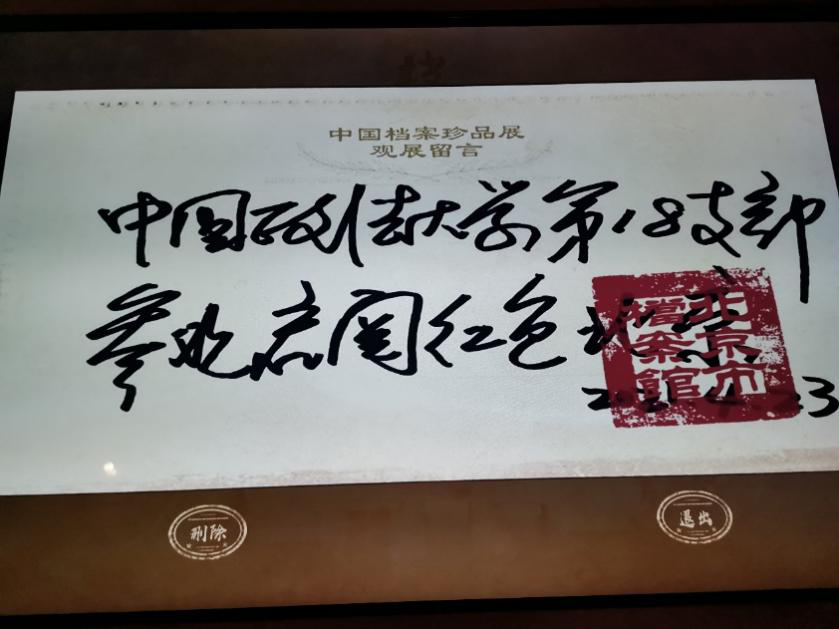 中国档案珍品展
观展留言
中国政法大学第18支部
参观 红色
北京市
档案馆
删除
退出